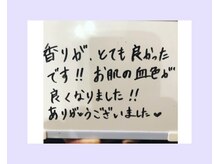 香りが、とても良かった
です!! お肌の血色が
良くなりました!!
ありがとうございました♥